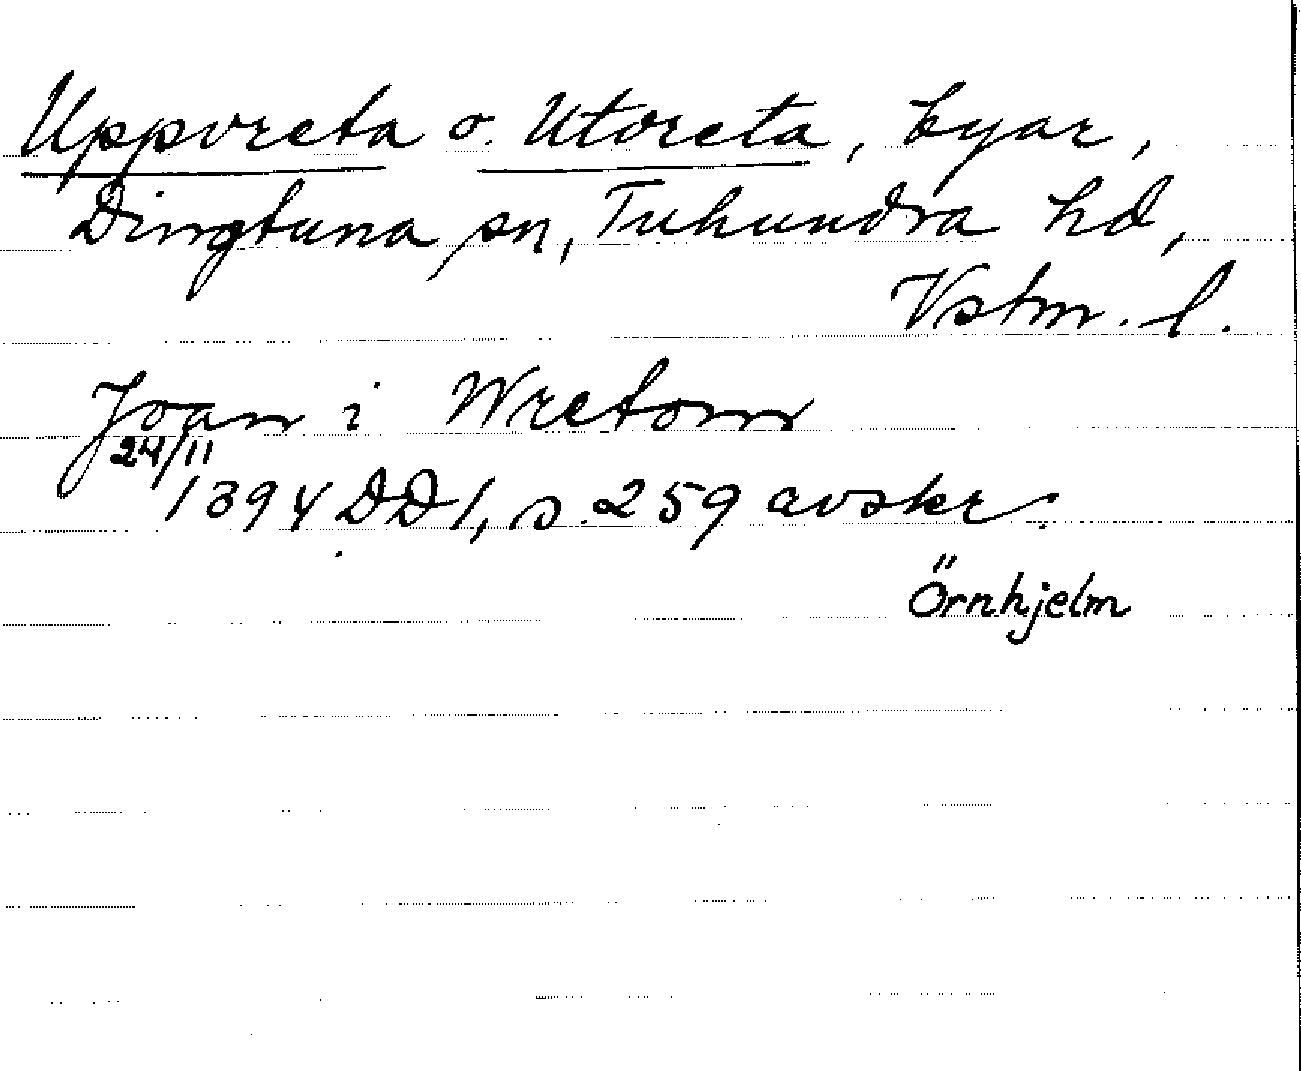 Uppvreta o. Utvreta, byar,
Dingtuna sn, Tuhundra hd,
Vstm. l.
Joan i Wretom
24/11
1394 DD1, s. 259 avskr.
Örnhjelm